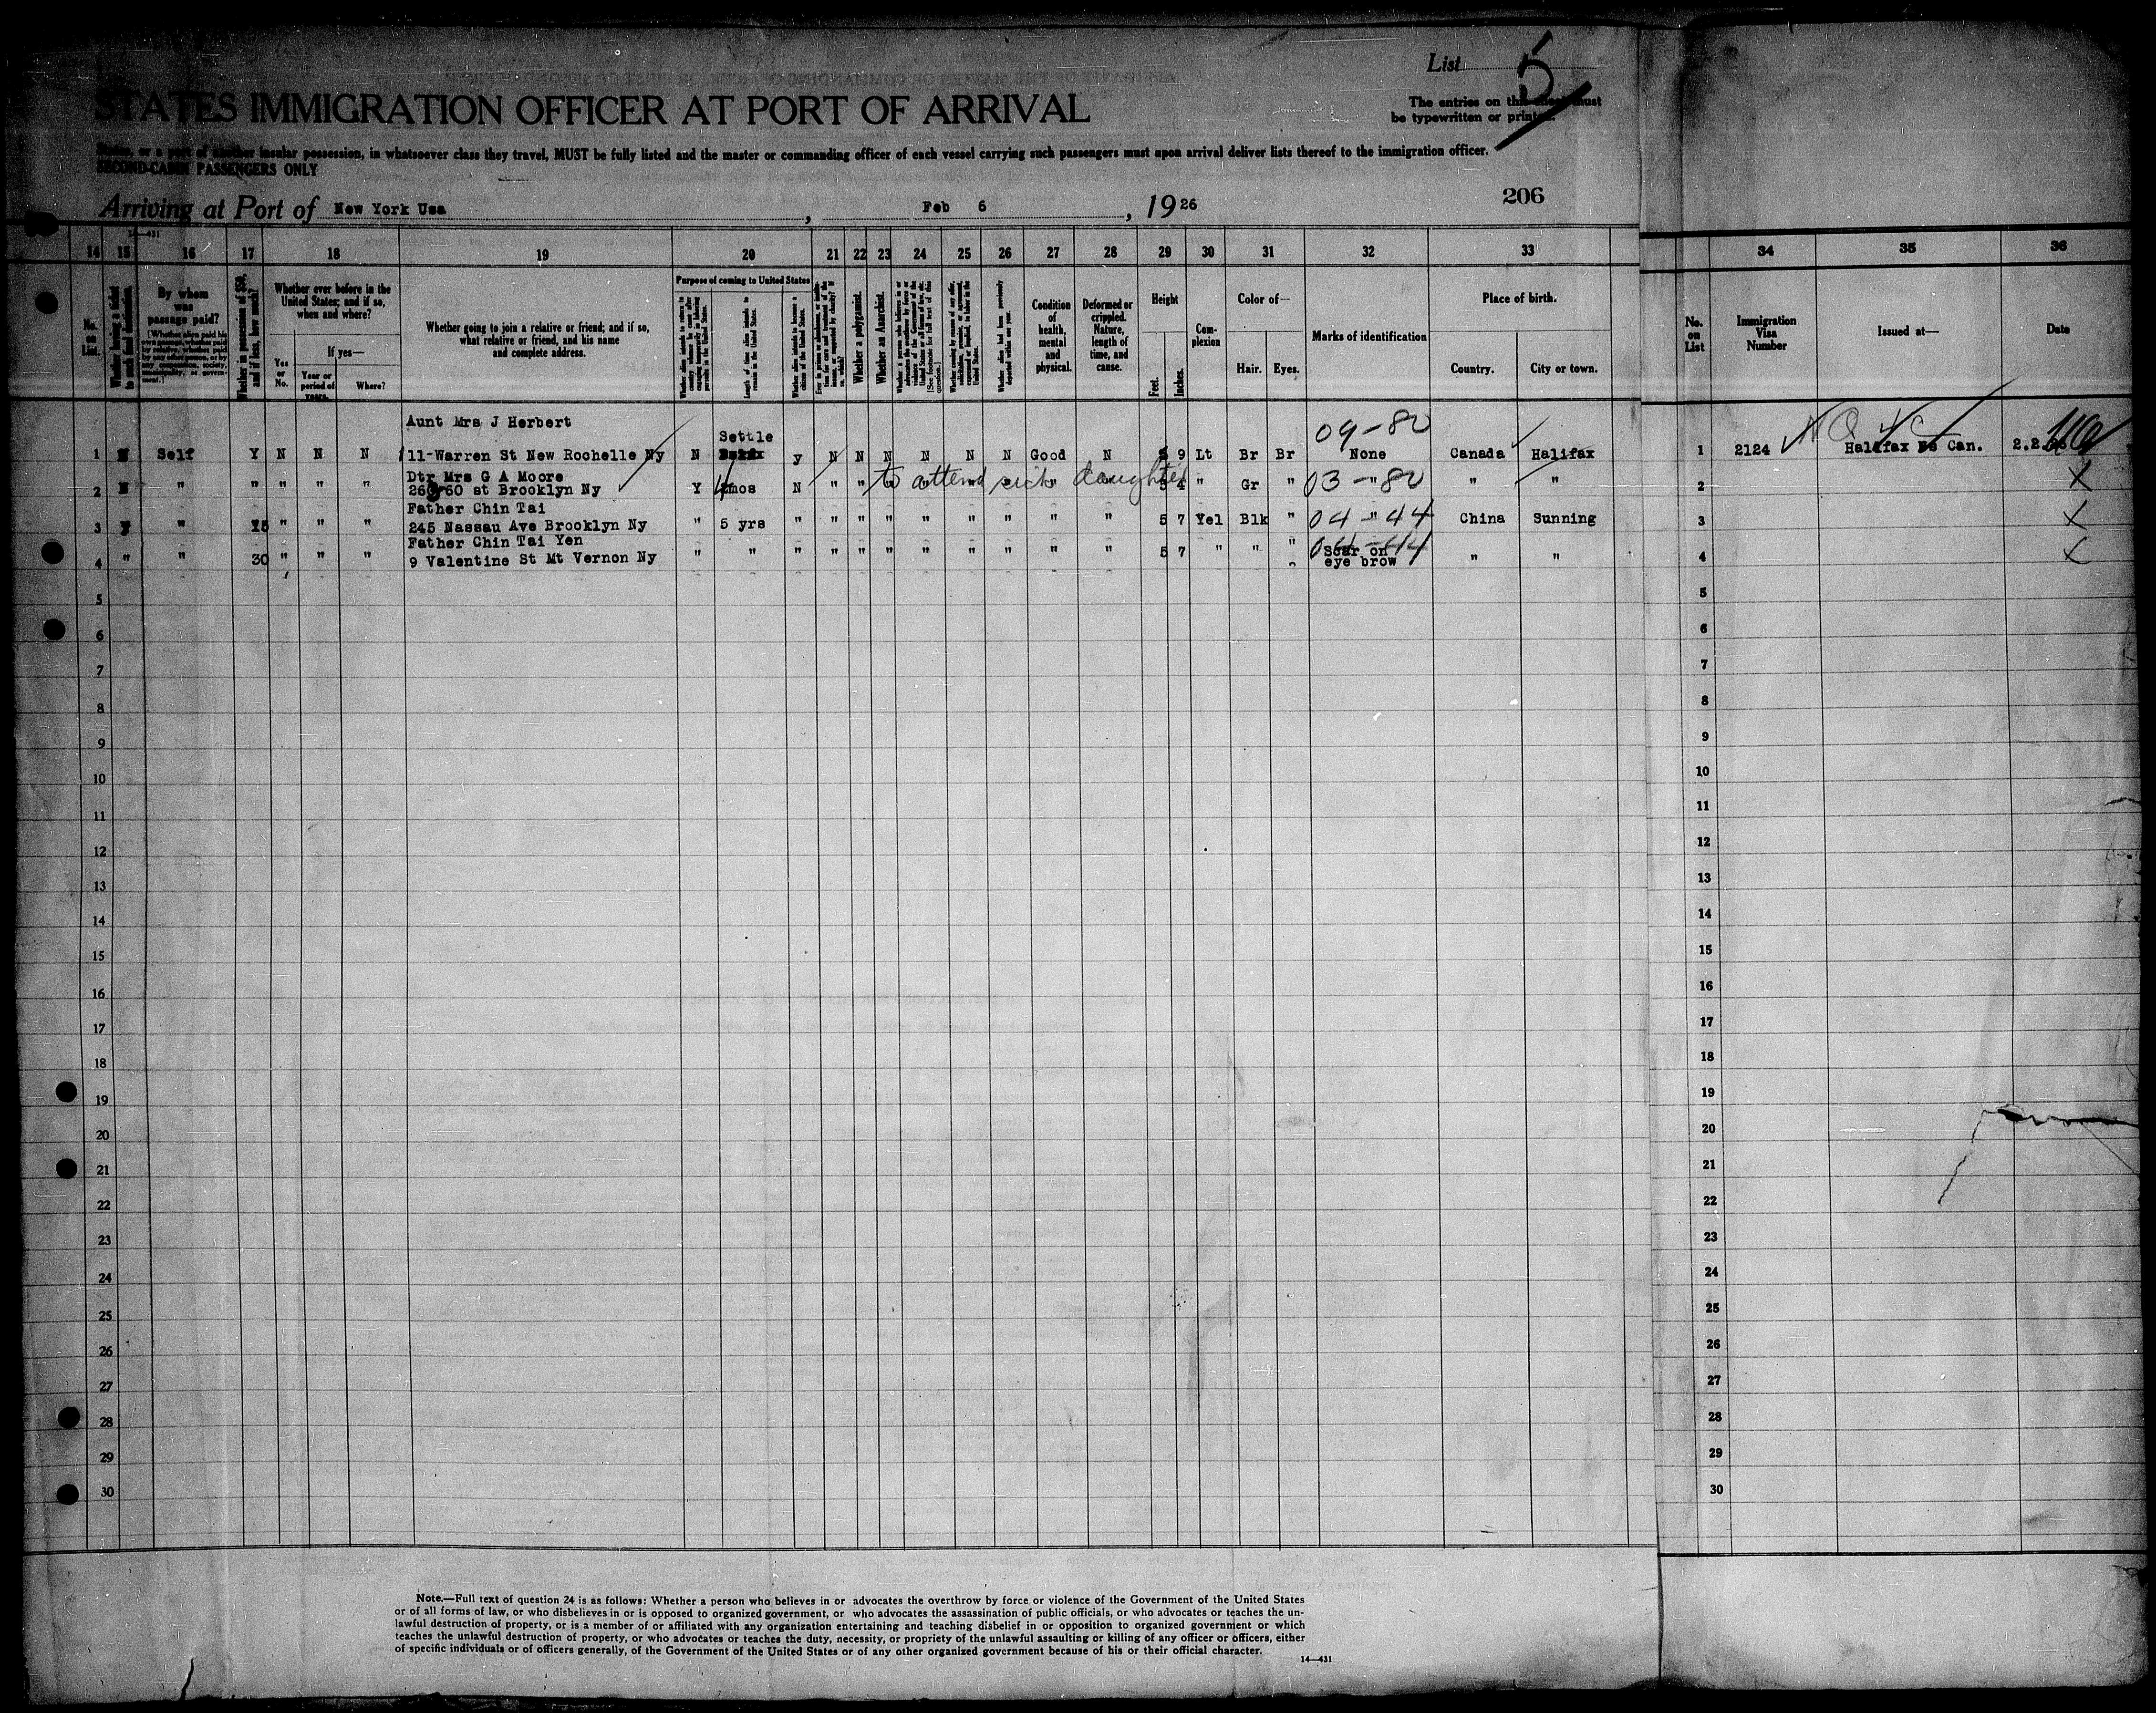 List 5
STATES IMMIGRATION OFFICER AT PORT OF ARRIVAL
The entries on this sheet must
be typewritten or printed.
States, or a port of another insular possession, in whatsoever class they travel, MUST be fully listed and the master or commanding officer of each vessel carrying such passengers must upon arrival deliver lists thereof to the immigration officer.
SECOND-CABIN PASSENGERS ONLY
206
Arriving at Port of New York Usa, Feb 6, 1926
14—431
14 15 16 17 18 19 20 21 22 23 24 25 26 27 28 29 30 31 32 33 34 35 36
No. on List.
By whom was passage paid?
Whether in possession of $50, and if less, how much?
Whether ever before in the United States; and if so, when and where?
Yes or No.
If yes—
Year or period of years.
Where?
Whether going to join a relative or friend; and if so, what relative or friend, and his name and complete address.
Purpose of coming to United States
Length of time alien intends to remain in the United States.
Whether alien intends to become a citizen of the United States.
Whether a polygamist.
Whether an Anarchist.
Condition of health, mental and physical.
Deformed or crippled. Nature, length of time, and cause.
Height
Feet. Inches.
Complexion
Color of—
Hair. Eyes.
Marks of identification
Place of birth.
Country. City or town.
No. on List
Immigration Visa Number
Issued at—
Date
Aunt Mrs J Herbert
09-80
Settle
1 N Self Y N N N 11-Warren St New Rochelle Ny N y N N N N N N Good N 5 9 Lt Br Br None Canada Halifax 1 2124 Halifax Ns Can.
Dtr Mrs G A Moore
to attend sick daughter
2 N " " " " " 260 60 st Brooklyn Ny Y mos N " " " " " " " " 5 4 " Gr " 03-80 " " 2 X
Father Chin Tai
3 y " 15 " " " 245 Nassau Ave Brooklyn Ny " 5 yrs " " " " " " " " " 5 7 Yel Blk " 04-"44 China Sunning 3 X
Father Chin Tai Yen
4 " " 30 " " " 9 Valentine St Mt Vernon Ny " " " " " " " " " " " 5 7 " " " 04-44 Scar on eye brow " " 4 X
5 5
6 6
7 7
8 8
9 9
10 10
11 11
12 12
13 13
14 14
15 15
16 16
17 17
18 18
19 19
20 20
21 21
22 22
23 23
24 24
25 25
26 26
27 27
28 28
29 29
30 30
Note.—Full text of question 24 is as follows: Whether a person who believes in or advocates the overthrow by force or violence of the Government of the United States
or of all forms of law, or who disbelieves in or is opposed to organized government, or who advocates the assassination of public officials, or who advocates or teaches the un-
lawful destruction of property, or is a member of or affiliated with any organization entertaining and teaching disbelief in or opposition to organized government or which
teaches the unlawful destruction of property, or who advocates or teaches the duty, necessity, or propriety of the unlawful assaulting or killing of any officer or officers, either
of specific individuals or of officers generally, of the Government of the United States or of any other organized government because of his or their official character.
14—431